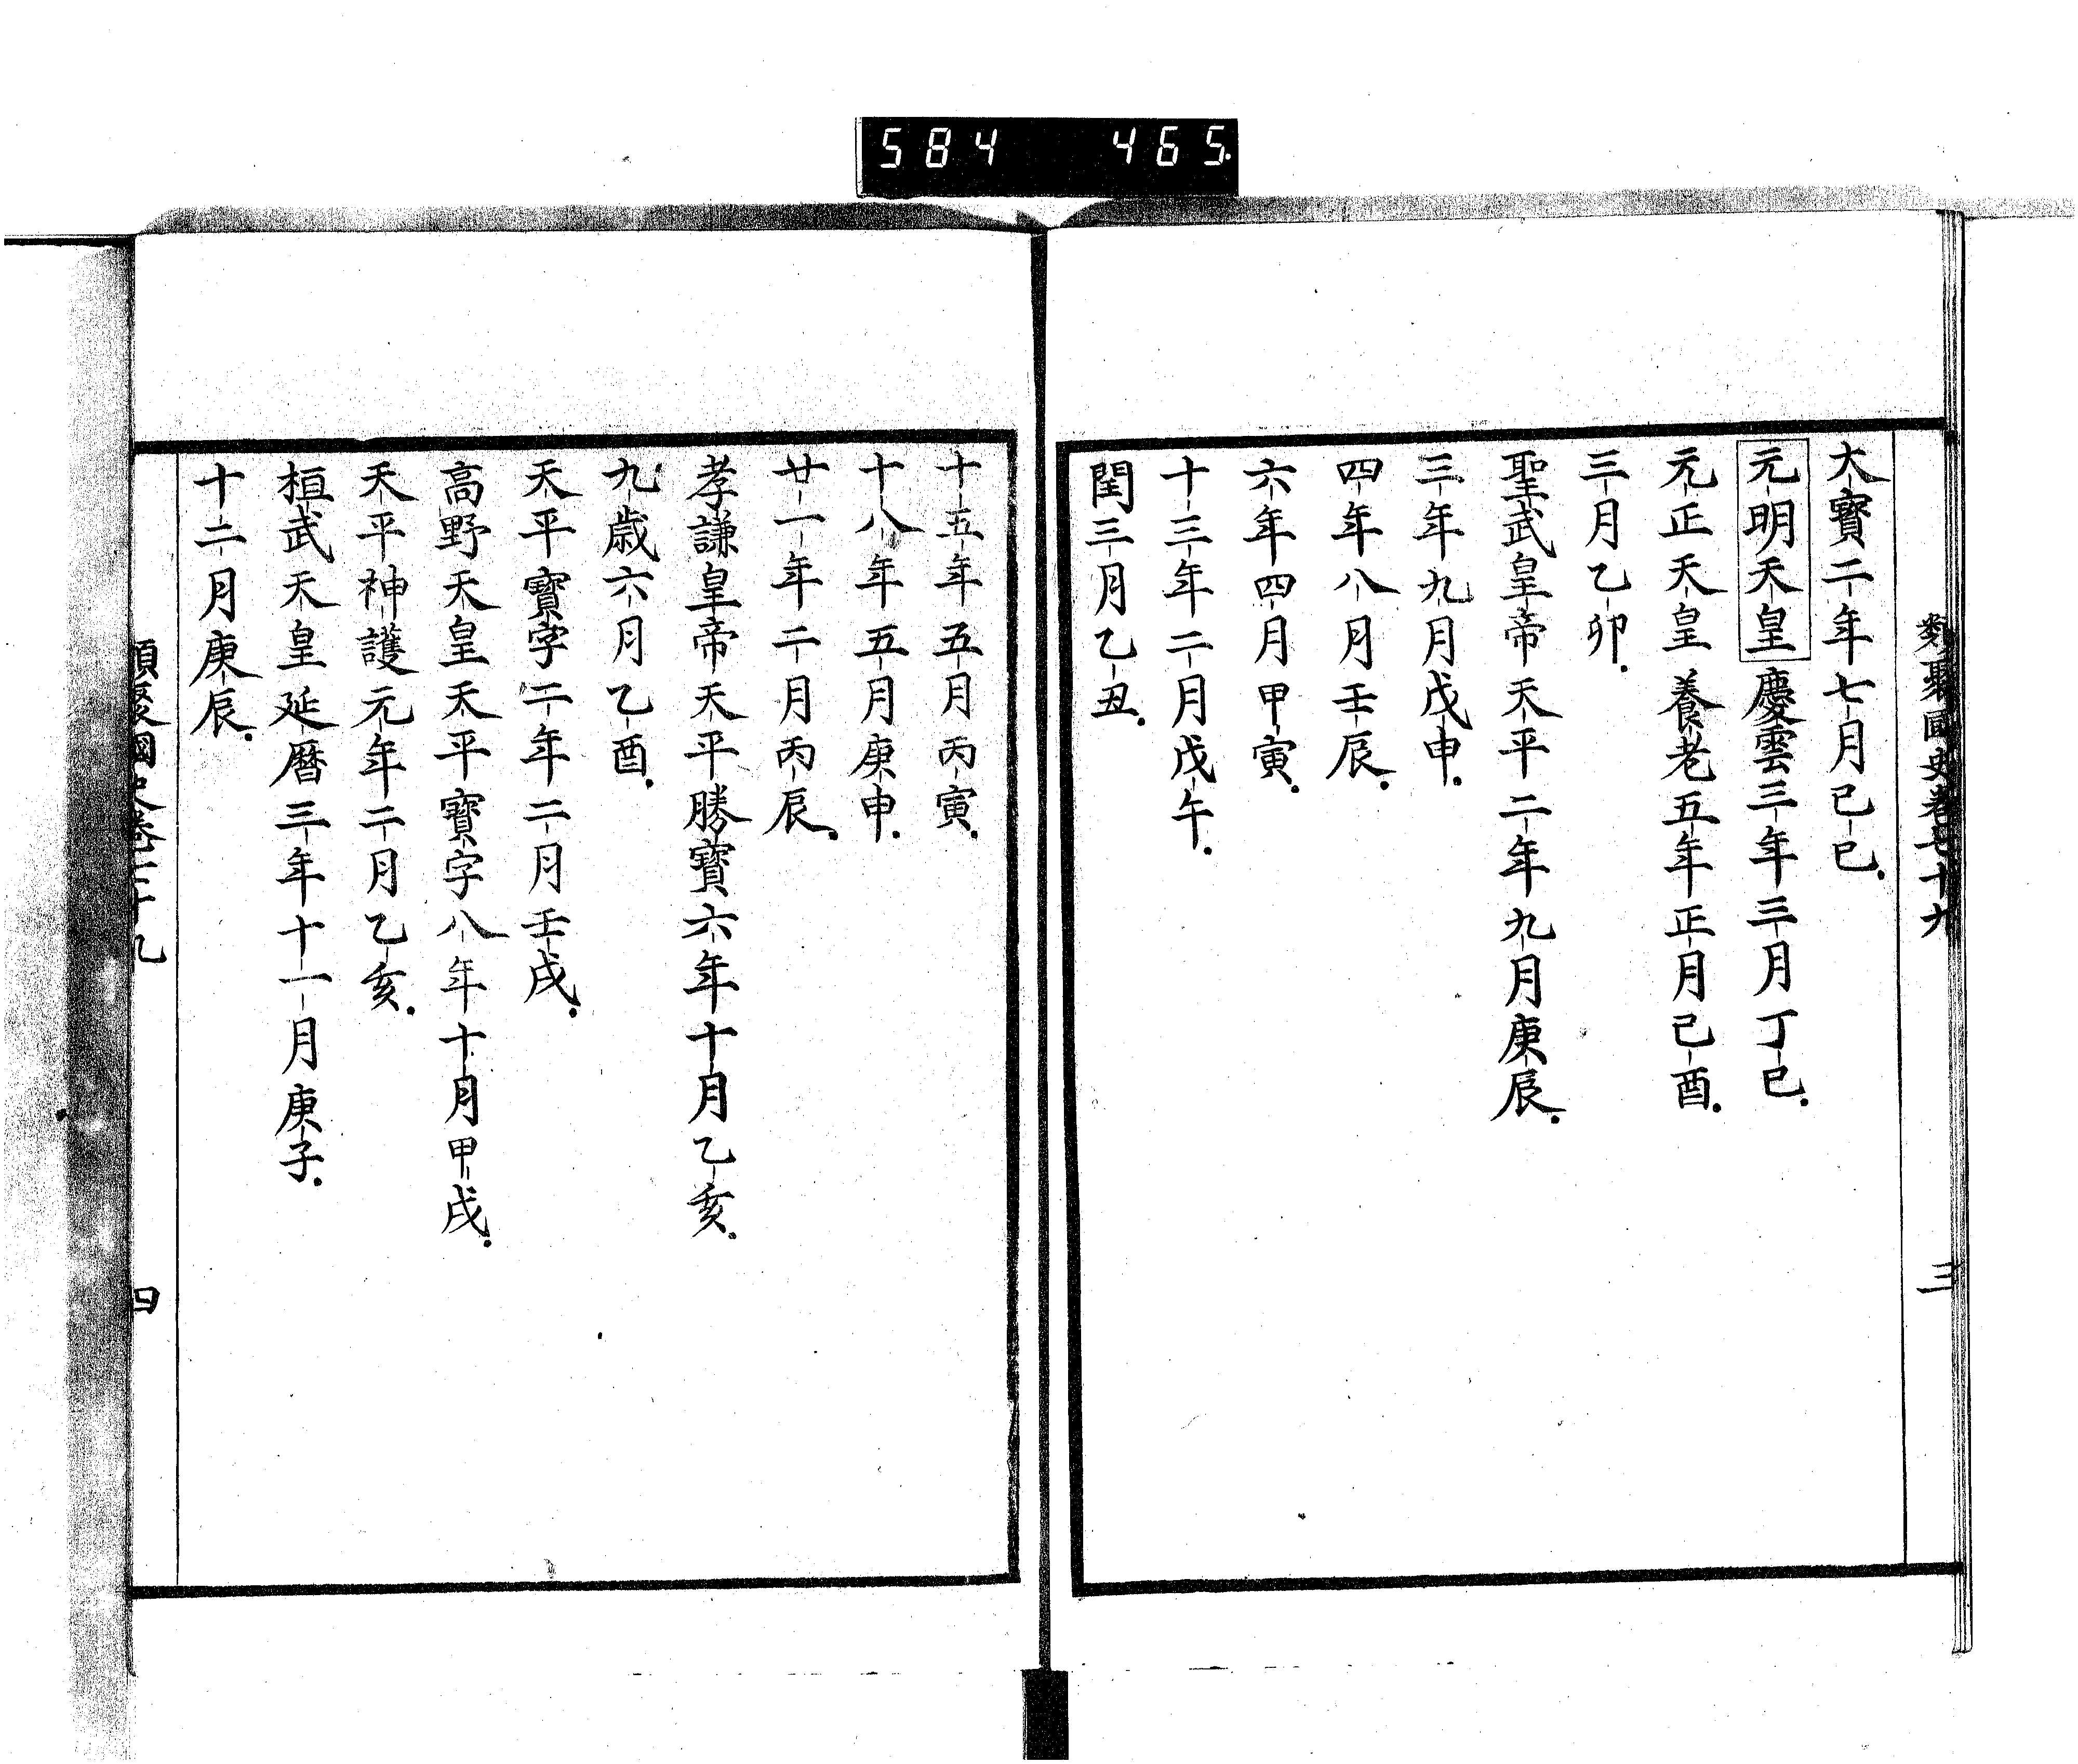 584 465
類聚國史卷七十九 三
大寶二年七月己巳
元明天皇慶雲三年三月丁巳
元正天皇養老五年正月己酉
三月乙卯
聖武皇帝天平二年九月庚辰
三年九月戊申
四年八月壬辰
六年四月甲寅
十三年二月戊午
閏三月乙丑
十五年五月丙寅
十八年五月庚申
廿一年二月丙辰
孝謙皇帝天平勝寶六年十月乙亥
九歲六月乙酉
天平寶字二年二月壬戌
高野天皇天平寶字八年十月甲戌
天平神護元年二月乙亥
桓武天皇延曆三年十一月庚子
十二月庚辰
類聚國史卷七十九 四